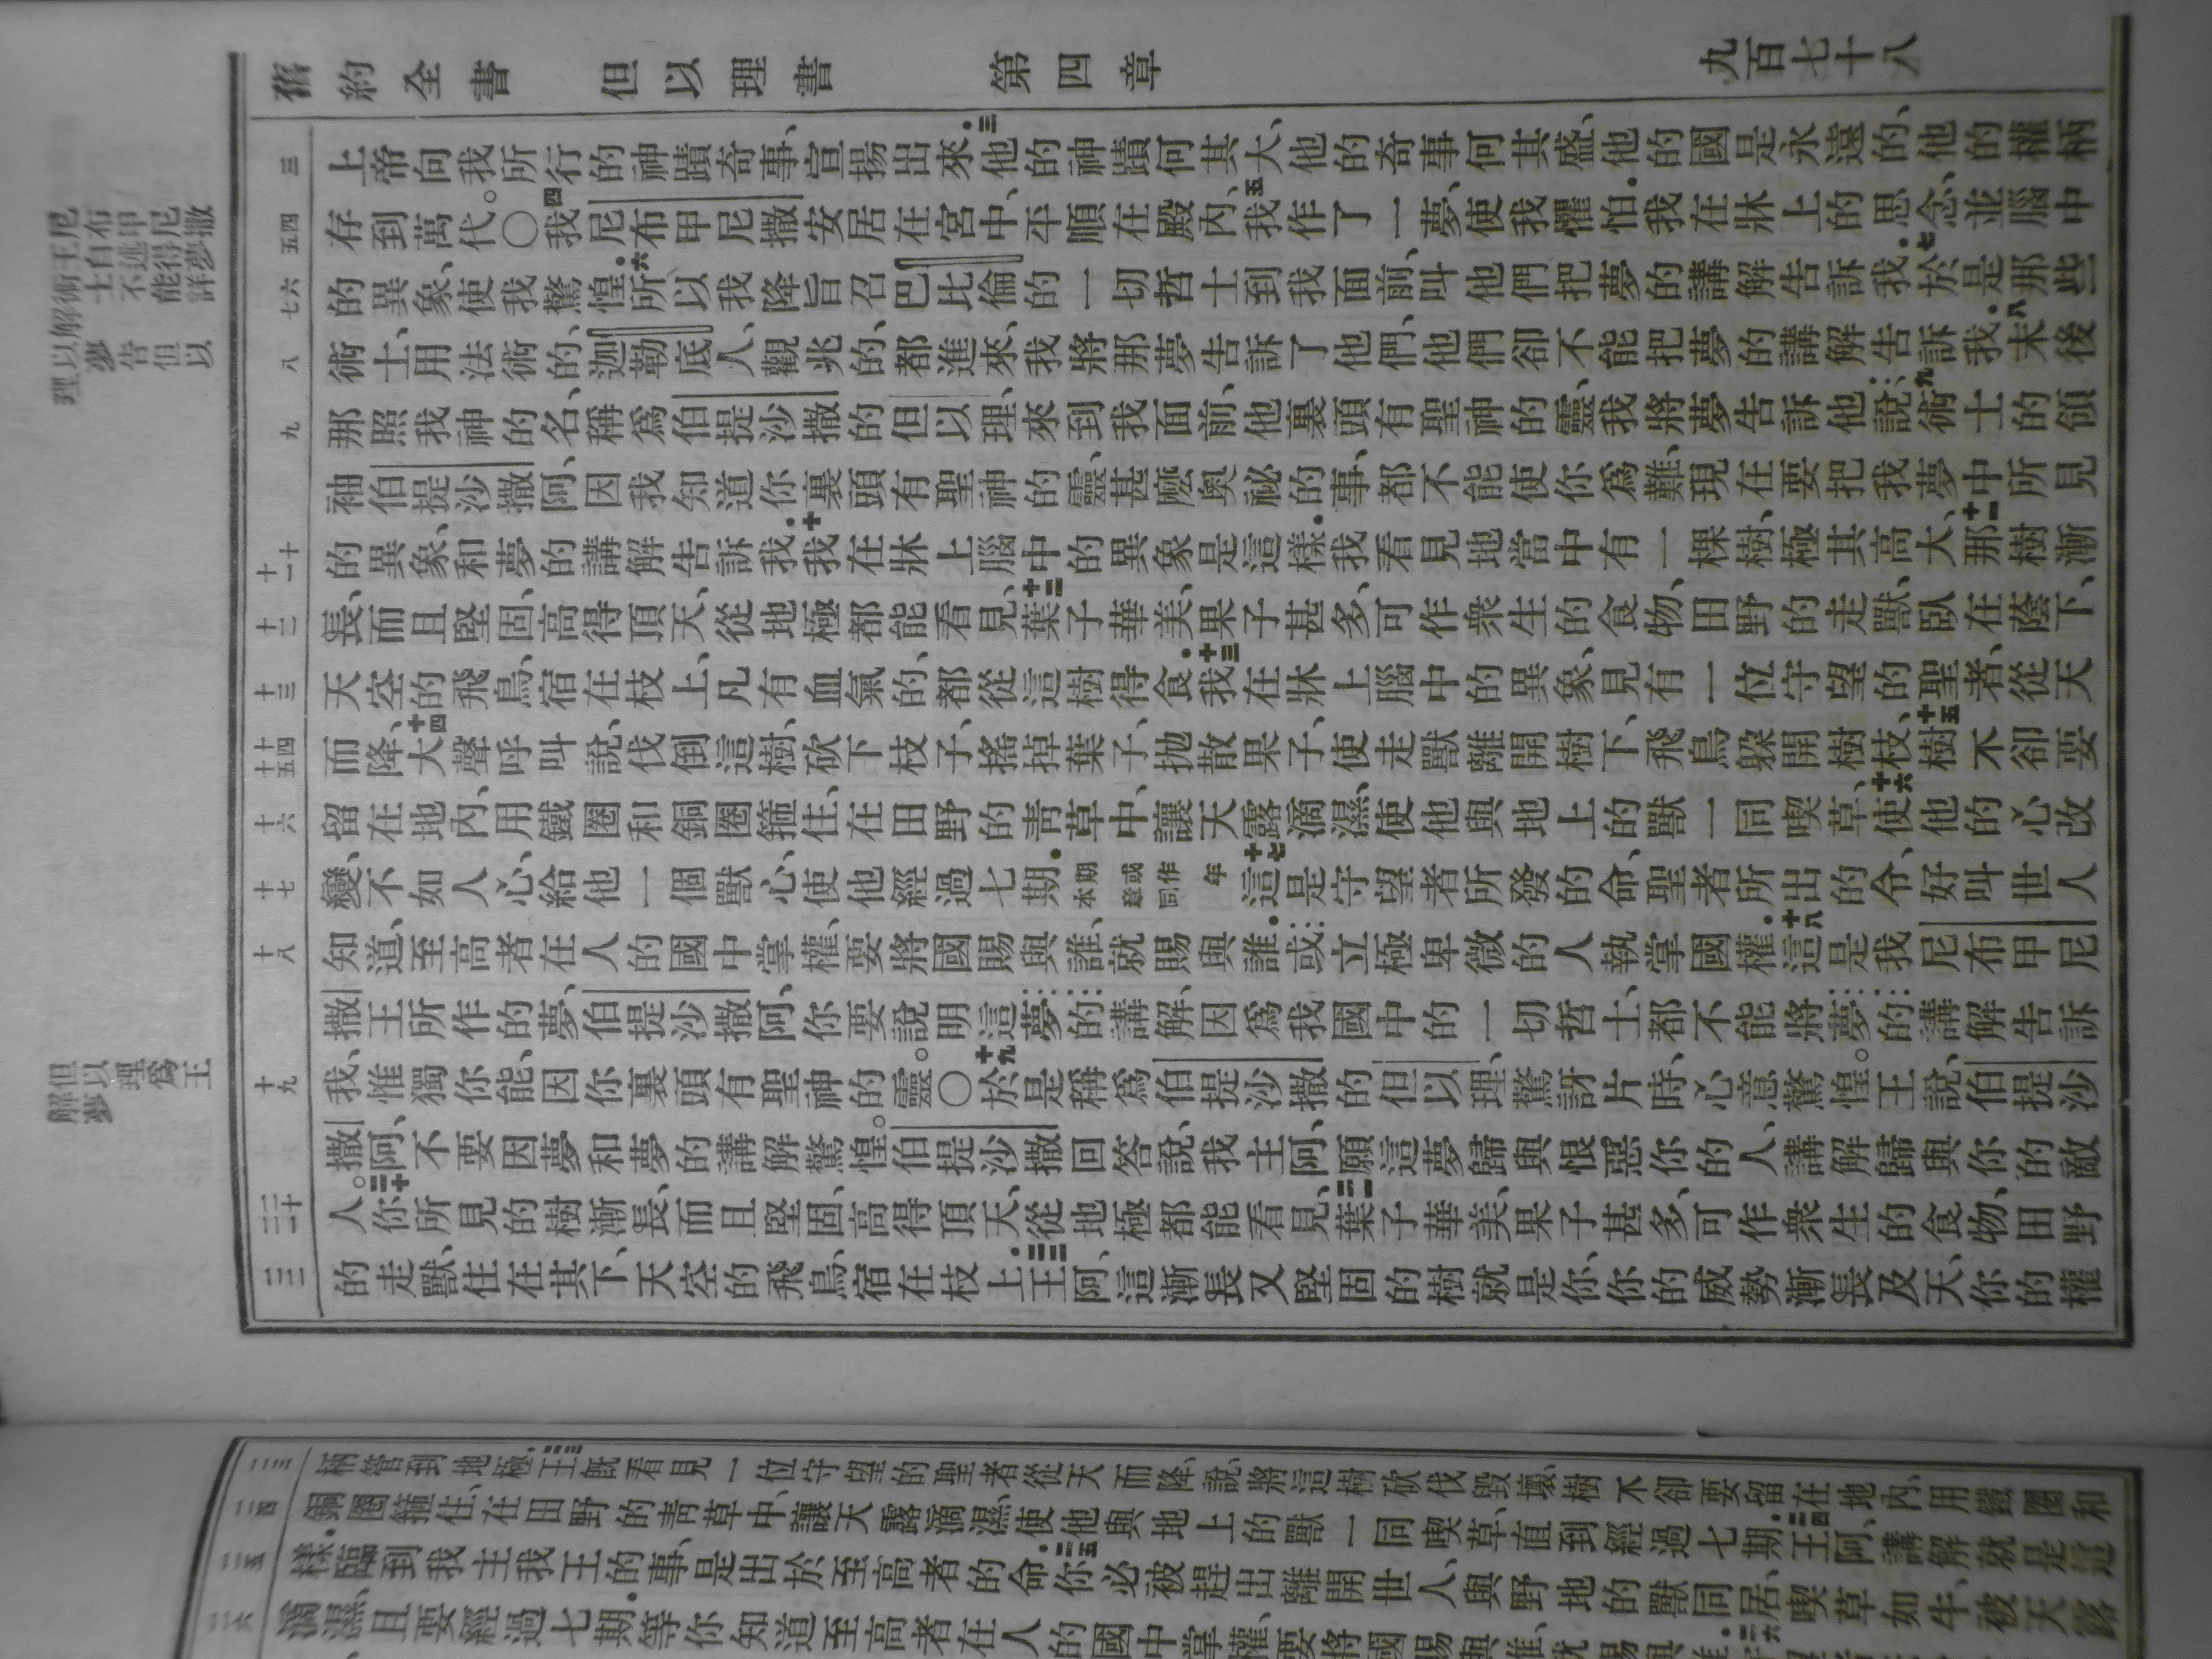 舊約全書 但以理書 第四章 九百七十八
尼布甲尼撒
王自述得夢
術士不能詳
解告但以
以夢
理
但以理為王
解夢
三 上帝向我所行的神蹟奇事、宣揚出來．三他的神蹟何其大、他的奇事何其盛、他的國是永遠的、他的權柄
四五 存到萬代。〇四我尼布甲尼撒安居在宮中、平順在殿內、五我作了一夢、使我懼怕．我在牀上的思念、並腦中
六七 的異象、使我驚惶．六所以我降旨召巴比倫的一切哲士到我面前、叫他們把夢的講解告訴我．七於是那些
八 術士、用法術的、迦勒底人、觀兆的、都進來、我將那夢告訴了他們、他們卻不能把夢的講解告訴我．八末後
九 那照我神的名、稱爲伯提沙撒的但以理、來到我面前、他裏頭有聖神的靈、我將夢告訴他說、九術士的領
袖伯提沙撒阿、因我知道你裏頭有聖神的靈、甚麽奧祕的事、都不能使你爲難、現在要把我夢中所見
十十一 的異象、和夢的講解告訴我．十我在牀上腦中的異象是這樣．我看見地當中有一棵樹、極其高大、十一那樹漸
十二 長、而且堅固、高得頂天、從地極都能看見、十二葉子華美、果子甚多、可作衆生的食物、田野的走獸、臥在蔭下、
十三 天空的飛鳥、宿在枝上、凡有血氣的、都從這樹得食．十三我在牀上腦中的異象、見有一位守望的聖者、從天
十四十五 而降、十四大聲呼叫說、伐倒這樹、砍下枝子、搖掉葉子、拋散果子、使走獸離開樹下、飛鳥躲開樹枝、十五樹𣎴卻要
十六 留在地內、用鐵圈和銅圈箍住、在田野的靑草中、讓天露滴濕、使他與地上的獸一同喫草、十六使他的心改
十七 變、不如人心、給他一個獸心、使他經過七期．期或作年本章同十七這是守望者所發的命、聖者所出的令、好叫世人
十八 知道、至高者在人的國中掌權、要將國賜與誰、就賜與誰．或立極卑微的人執掌國權．十八這是我尼布甲尼
撒王所作的夢、伯提沙撒阿、你要說明這夢的講解、因爲我國中的一切哲士、都不能將夢的講解告訴
十九 我、惟獨你能、因你裏頭有聖神的靈。〇十九於是稱爲伯提沙撒的但以理、驚訝片時、心意驚惶。王說、伯提沙
撒阿、不要因夢和夢的講解驚惶。伯提沙撒回答說、我主阿、願這夢歸與恨惡你的人、講解歸與你的敵
二十二一 人。二十你所見的樹漸長、而且堅固、高得頂天、從地極都能看見、二一葉子華美、果子甚多、可作衆生的食物、田野
二二 的走獸、住在其下、天空的飛鳥、宿在枝上．二二王阿、這漸長又堅固的樹就是你、你的威勢漸長及天、你的權
二三 柄管到地極．二三王旣看見一位守望的聖者從天而降、說、將這樹砍伐毀壞、樹𣎴卻要留在地內、用鐵圈和
二四 銅圈箍住、在田野的靑草中、讓天露滴濕、使他與地上的獸一同喫草、直到經過七期．二四王阿、講解就是這
二五 樣．臨到我主我王的事、是出於至高者的命．二五你必被趕出離開世人、與野地的獸同居、喫草如牛、被天露
二六 滴濕、且要經過七期．等你知道至高者在人的國中掌權、要將國賜與誰、就賜與誰．二六